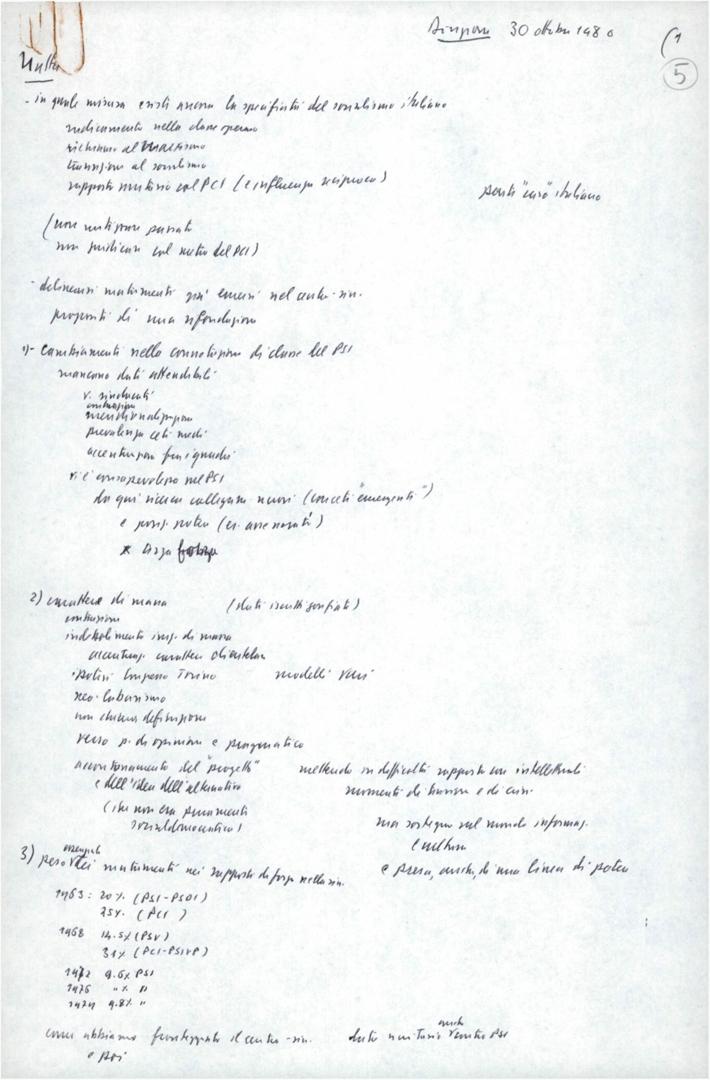 30 ottobre 1980
(1
5
- in quale misura esiste ancora la specificità del socialismo italiano
radicamento nella classe operaia
richiamo al marxismo
transizione al socialismo
rapporto unitario col PCI (e influenza reciproca)
"caso" italiano
(non mitizzare passato
non giudicare col metro del PCI)
- mutamenti già emersi nel centro-sin.
propositi di una rifondazione
1)- Cambiamenti nella connotazione di classe del PSI
mancano dati attendibili
v. sindacati
prevalenza ceti medi
vi è consapevolezza nel PSI
da qui ricerca collegam. nuovi (con ceti "emergenti")
e posiz. potere (es. assessorati)
2) carattere di massa (dati iscritti gonfiati)
contrazione
indebolimento insed. di massa
accentuaz. carattere clientelare
ipotesi Congresso Torino modelli vari
neo-laburismo
non chiara definizione
verso p. di opinione e pragmatico
accantonamento del "progetto" mettendo in difficoltà rapporto con intellettuali
e dell'idea dell'alternativa momenti di tensione e di crisi
(che non era puramente
socialdemocratica)
ma sostegno nel mondo informaz.
e cultura
3) peso dei mutamenti nei rapporti di forza nella sin.
e presa, anche, di una linea di potere
1963: 20% (PSI-PSDI)
25% (PCI)
1968 14.5% (PSU)
31% (PCI-PSIUP)
1972 9.6% PSI
1976 " % "
1979 9.8% "
come abbiamo fronteggiato il centro-sin.
e poi
anche